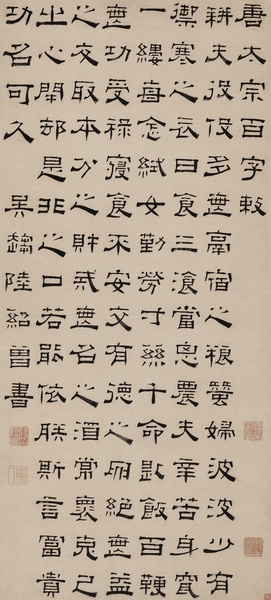 唐太宗百字敕
耕夫役役多無鬲宿之粮蠶婦波波少有
禦寒之衣日食三湌當思農夫辛苦身穿
一縷每念織女勤勞寸絲千命匙飯百鞭
無功受祿寢食不安交有德之朋絕無益
之友取本分之財戒無名之酒常褱克己
之心閉却是非之口若能依朕斯言富貴
功名可久 吳趨陸紹曾書